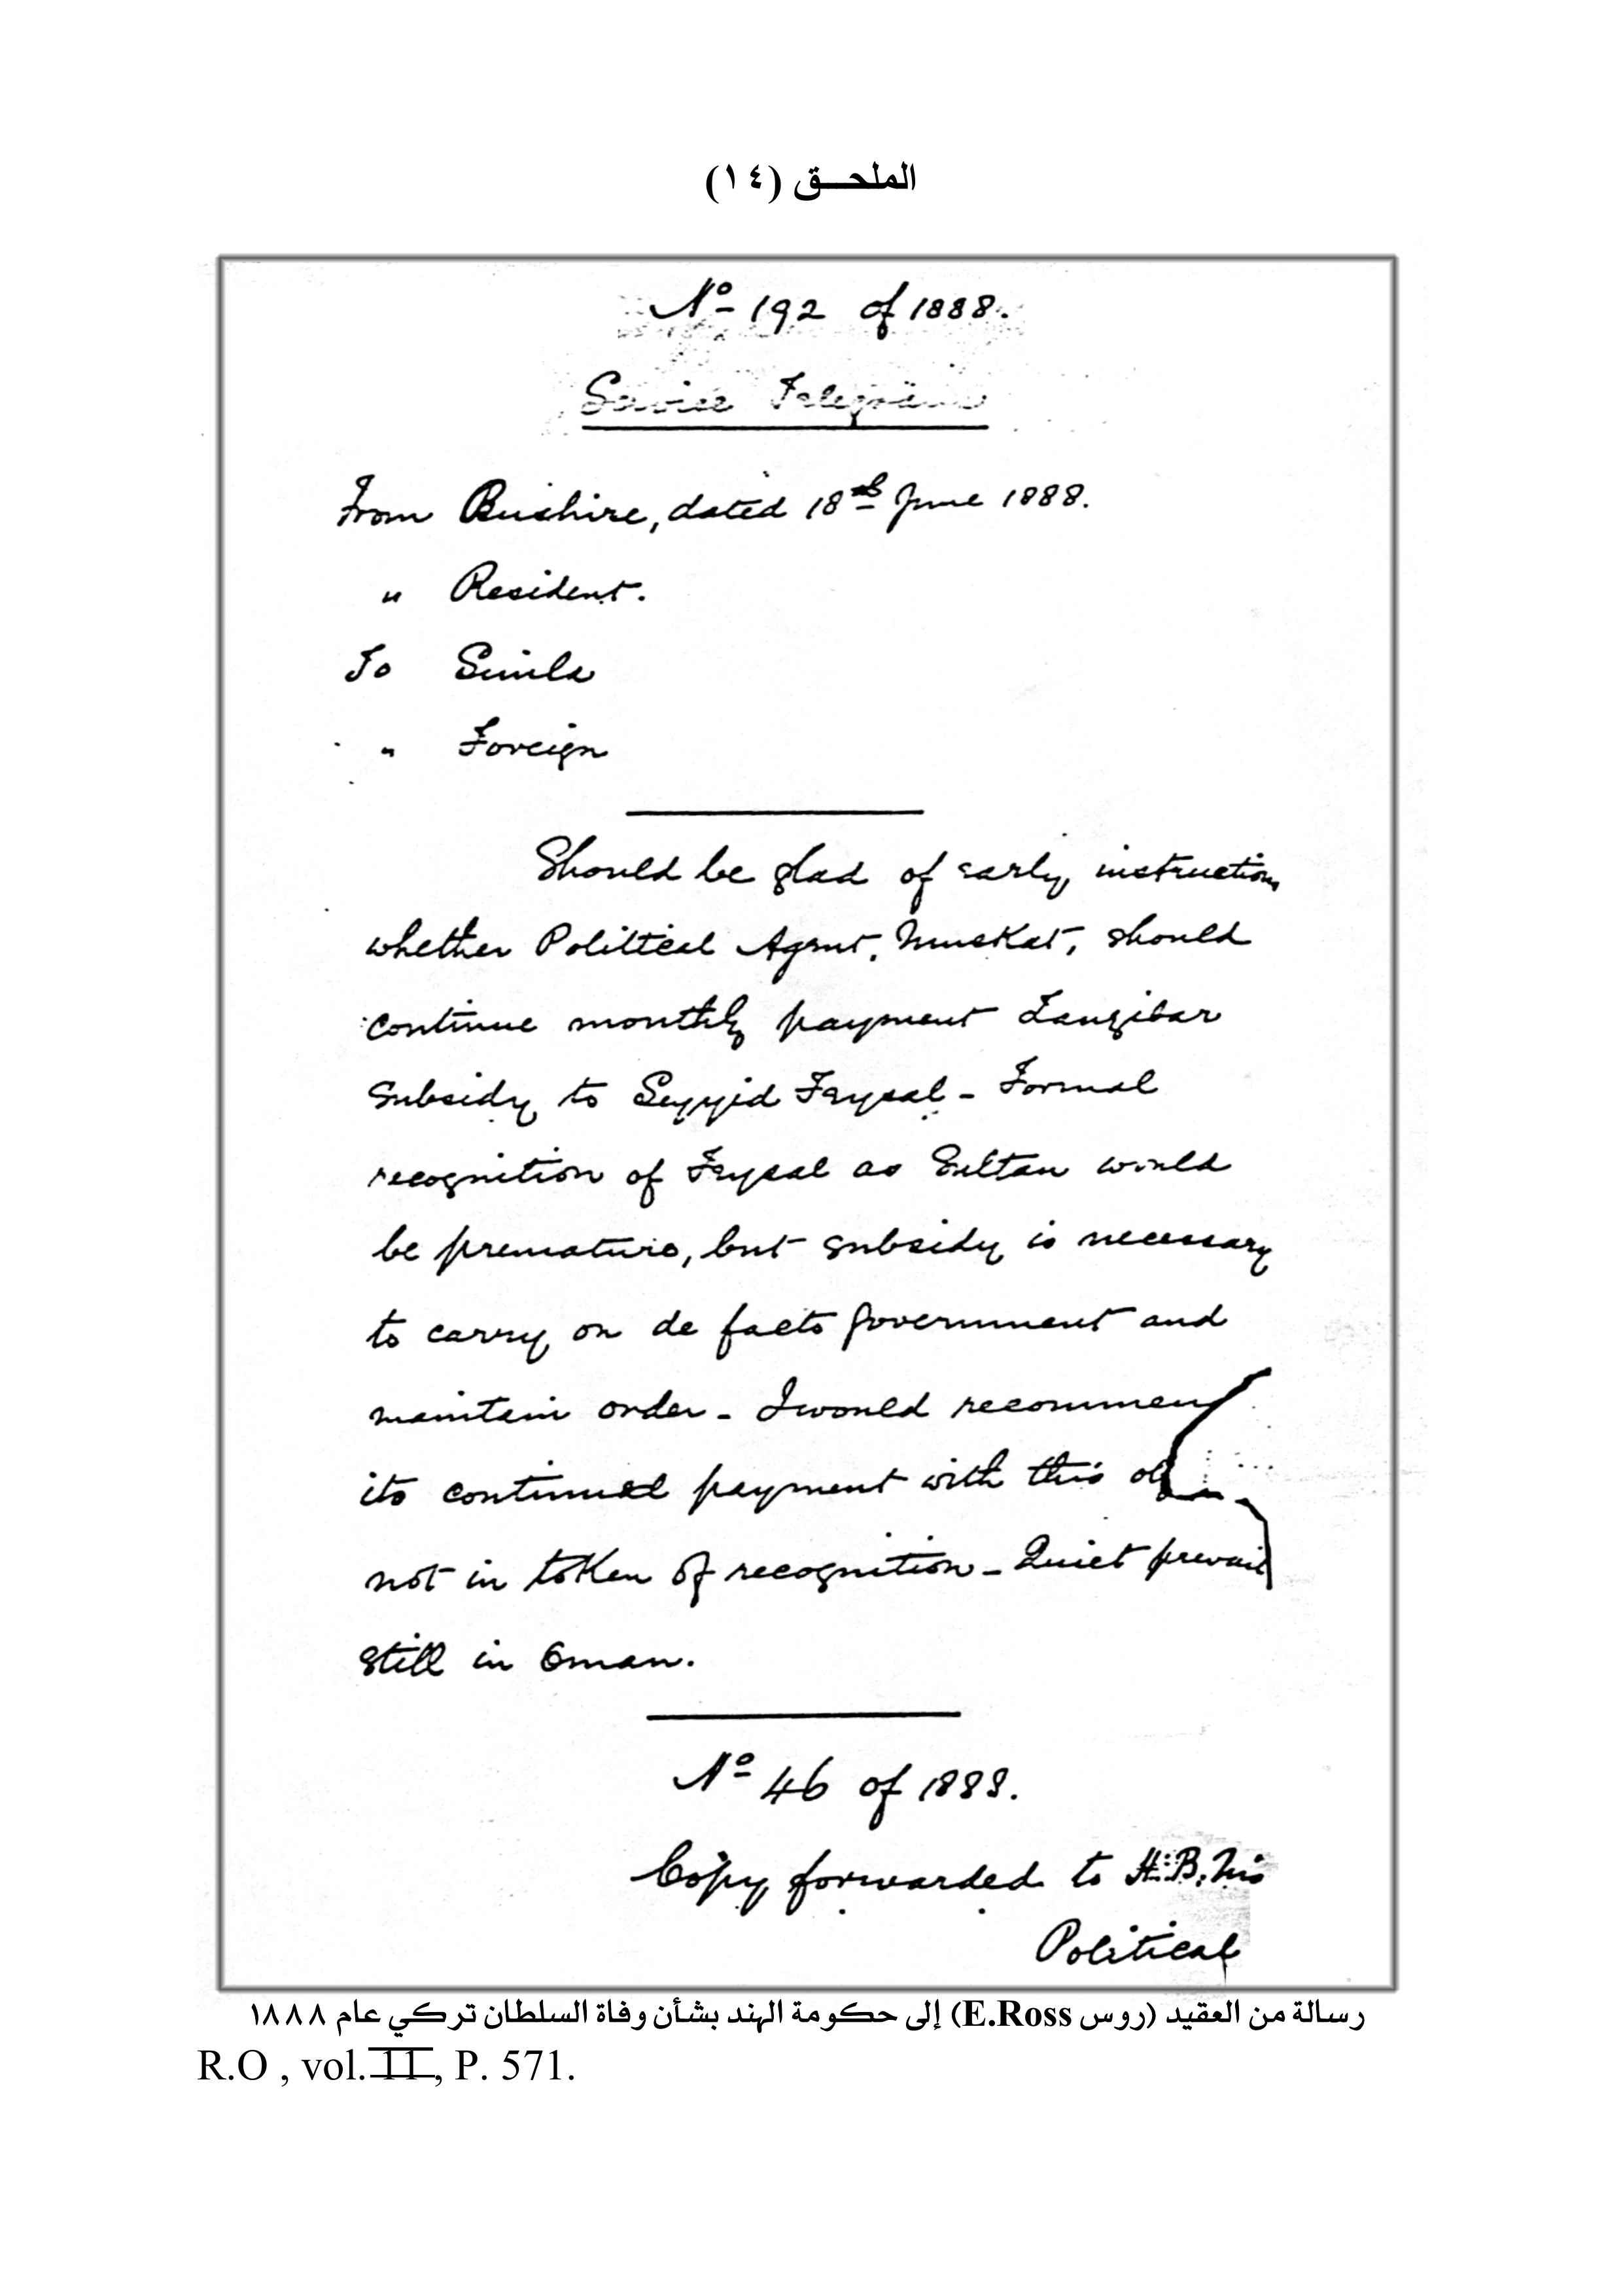 الملحـــق (١٤)
No 192 of 1888.
Service Telegram
From Bushire, dated 18th June 1888.
" Resident.
To Simla
" Foreign
Should be glad of early instructions
whether Political Agent, Muskat, should
continue monthly payment Zanzibar
Subsidy to Seyyid Feysal - Formal
recognition of Feysal as Sultan would
be premature, but subsidy is necessary
to carry on de facto government and
maintain order - I would recommen
its continued payment with this
not in token of recognition - Quiet prevail
still in Oman.
No 46 of 1888.
Copy forwarded to H.B.M's
Political
رسالة من العقيد (روس E.Ross) إلى حكومة الهند بشأن وفاة السلطان تركي عام ١٨٨٨
R.O , vol. II, P. 571.